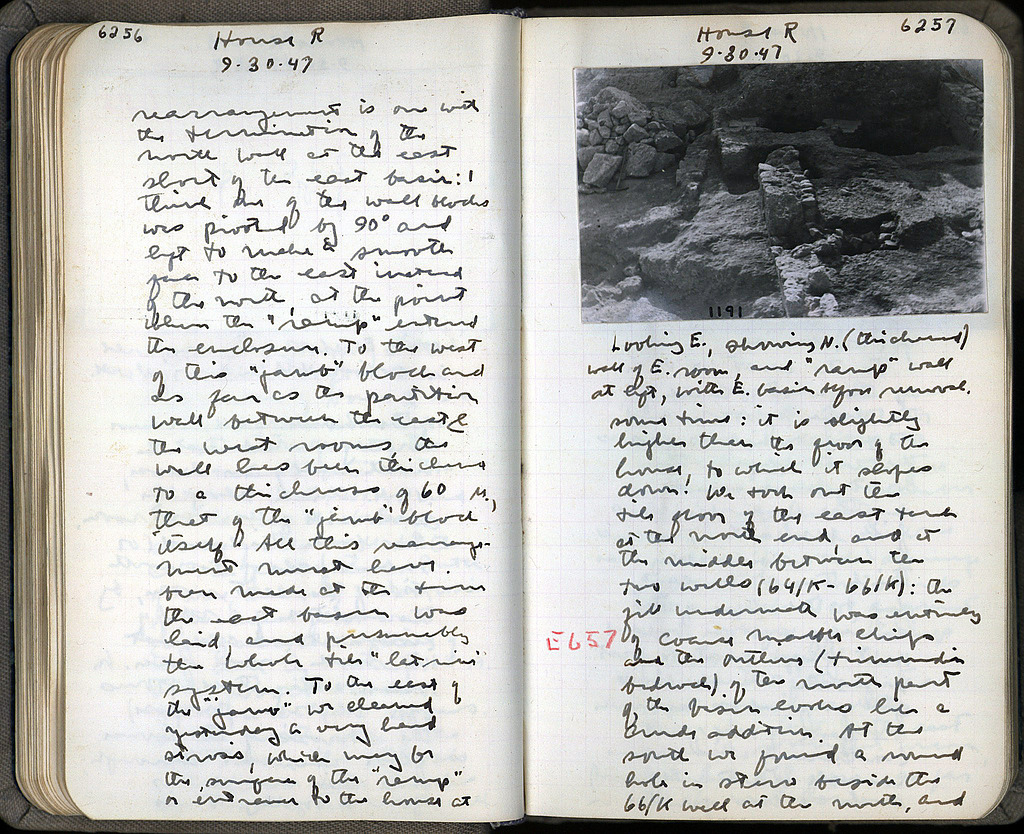 6256
House R
9.30.47
rearrangement is one with
the termination of the
north wall at the east
short of the east basin: 1
third of the wall blocks
was pivoted by 90° and
left to make a smooth
face to the east instead
of the north at the point
where the "ramp" entered
the enclosure. To the west
of this "jamb" block and
as far as the partition
wall between the east &
the west rooms, the
wall has been thickened
to a thickness of 60 M,
that of the "jamb" block
itself. All this rearrange-
ment must have
been made at the time
the east basin was
laid and presumably
the whole tile "latrine"
system. To the east of
the "jamb" we cleared
yesterday a very hard
stroses, which may be
the surface of the "ramp"
or entrance to the house at
6257
House R
9.30.47
1191
Looking E., showing N. (thickened)
wall of E. room, and "ramp" wall
at left, with E. basin before removal.
some time: it is slightly
higher than the floor of the
house, to which it slopes
down. We took out the
tile floor of the east tank
at the north end and at
the middle between the
two wells (64/K - 66/K): the
fill underneath was entirely
E657
of coarse marble chips
and the outline (trimmed in
bedrock) of the north part
of the basin looks like a
crude addition. At the
south we found a round
hole in stereo beside the
66/K well at the north, and